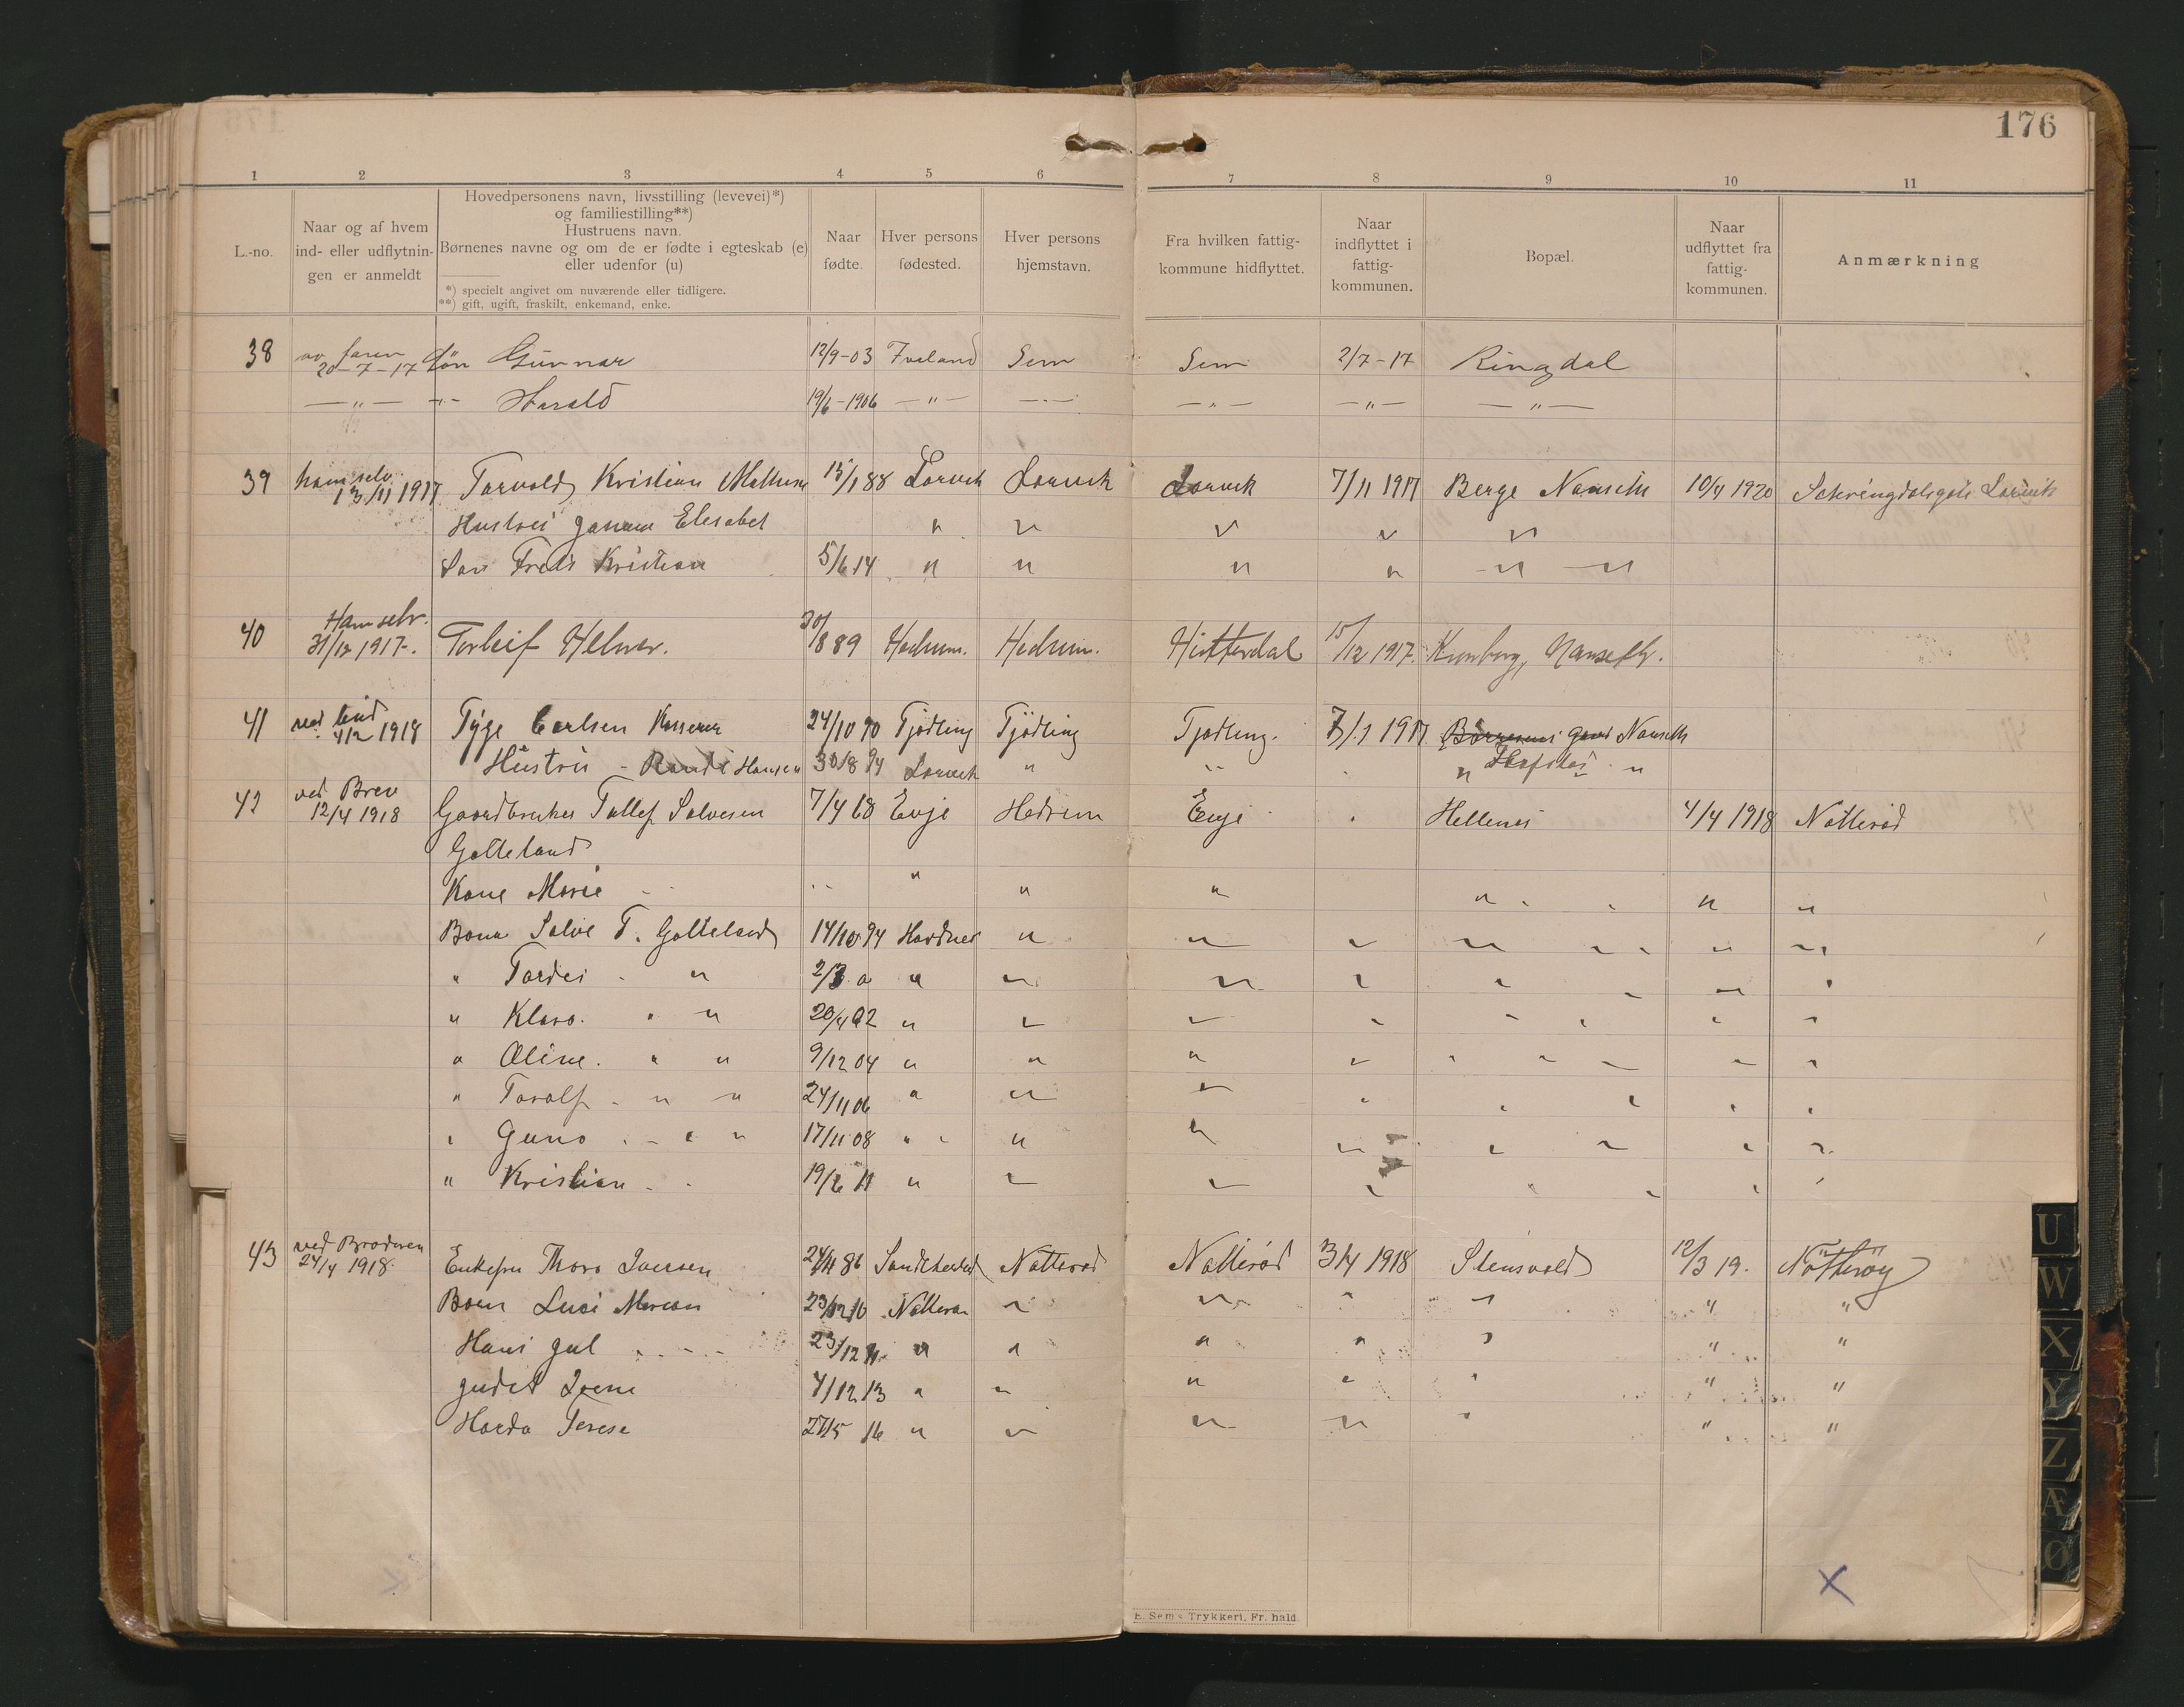 176
1 2 3 4 5 6 7 8 9 10 11
L.-no.
Naar og af hvem
ind- eller udflytnin-
gen er anmeldt
Hovedpersonens navn, livsstilling (levevei)*)
og familiestilling**)
Hustruens navn.
Børnenes navne og om de er fødte i egteskab (e)
eller udenfor (u)
*) specielt angivet om nuværende eller tidligere.
**) gift, ugift, fraskilt, enkemand, enke.
Naar
fødte.
Hver persons
fødested.
Hver persons
hjemstavn.
Fra hvilken fattig-
kommune hidflyttet.
Naar
indflyttet i
fattig-
kommunen.
Bopæl.
Naar
udflyttet fra
fattig-
kommunen.
Anmærkning
38 av faren 20-7-17 Søn Gunnar 12/9-03 Iveland Sem Sem 2/7-17 Ringdal
—"— -"- Harald 19/6-1906 —"— —"— —"— —"— —"—
39 ham selv 13/11 1917 Torvald Kristian 15/1 88 Larvik Larvik Larvik 7/11 1917 Berge Nanseth 10/4 1920 Larvik
Hustru Elesabet " " " " "
Søn Kristian 5/6 14 " " " " " "
40 Ham selv. 31/12 1917. Torleif 30/8 89 Hedrum. Hedrum. Hitterdal 15/12 1917. Nanseth.
41 ved bud 4/2 1918 Tyge Carlsen Kasserer 24/10 90 Tjødling Tjødling Tjødling. 7/1 1917 Nanseth
Hustru - Randi Hansen 30/8 94 Larvik " " " "
42 ved Brev 12/4 1918 Gaardbruker Tallef Salvesen 7/4 68 Evje Hedrum Evje Hellenes 4/4 1918 Nøtterød
Galteland
Kone Marie " " " " " "
Barn Salve T. Galteland 14/10 94 " " " " " "
" " 2/3 " " " " " " "
" Klara. " " 20/4 02 " " " " " " "
" Oline. " " 9/12 04 " " " " " " "
" Torolf " " 24/11 06 " " " " " " "
" " " 17/11 08 " " " " " " "
" Kristian 19/6 11 " " " " " " "
43 ved Broderen 24/4 1918. Enkefru Thora Iversen 24/4 86 Nøtterød Nøtterød 3/4 1918 Stensvold 12/3 19. Nøtterøy
Barn Lusi Marion 23/12 10 " " " " " "
Hans 23/12 11 " " " " " " "
4/12 13 " " " " " " "
Terese 27/5 16 " " " " " " "
E. Sem's Trykkeri, Fr.hald.
U
W
X
Y
Z
Æ
Ø